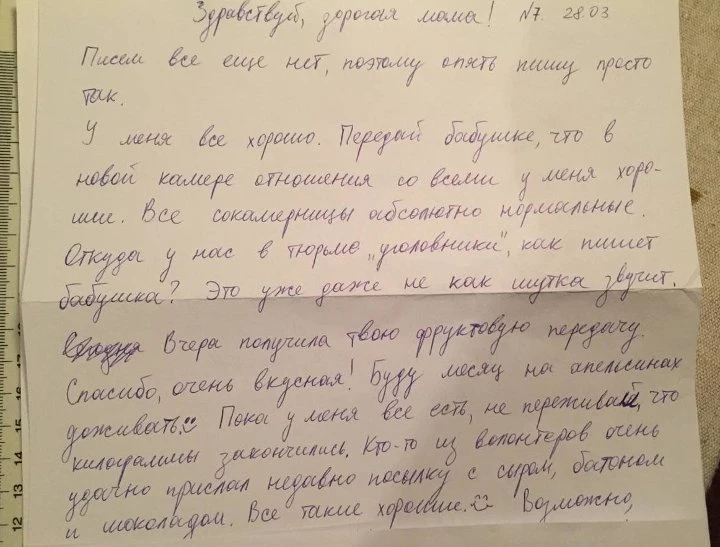 Здравствуй, дорогая мама! №7. 28.03
Писем все еще нет, поэтому опять пишу просто
так.
У меня все хорошо. Передай бабушке, что в
новой камере отношения со всеми у меня хоро-
шие. Все сокамерницы абсолютно нормальные.
Откуда у нас в тюрьме „уголовники", как пишет
бабушка? Это уже даже не как шутка звучит.
Вчера получила твою фруктовую передачу.
Спасибо, очень вкусная! Буду месяц на апельсинах
доживать. Пока у меня все есть, не переживай, что
килограммы закончились. Кто-то из волонтеров очень
удачно прислал недавно посылку с сыром, батоном
и шоколадом. Все такие хорошие. Возможно,
12 13 14 15 16 17